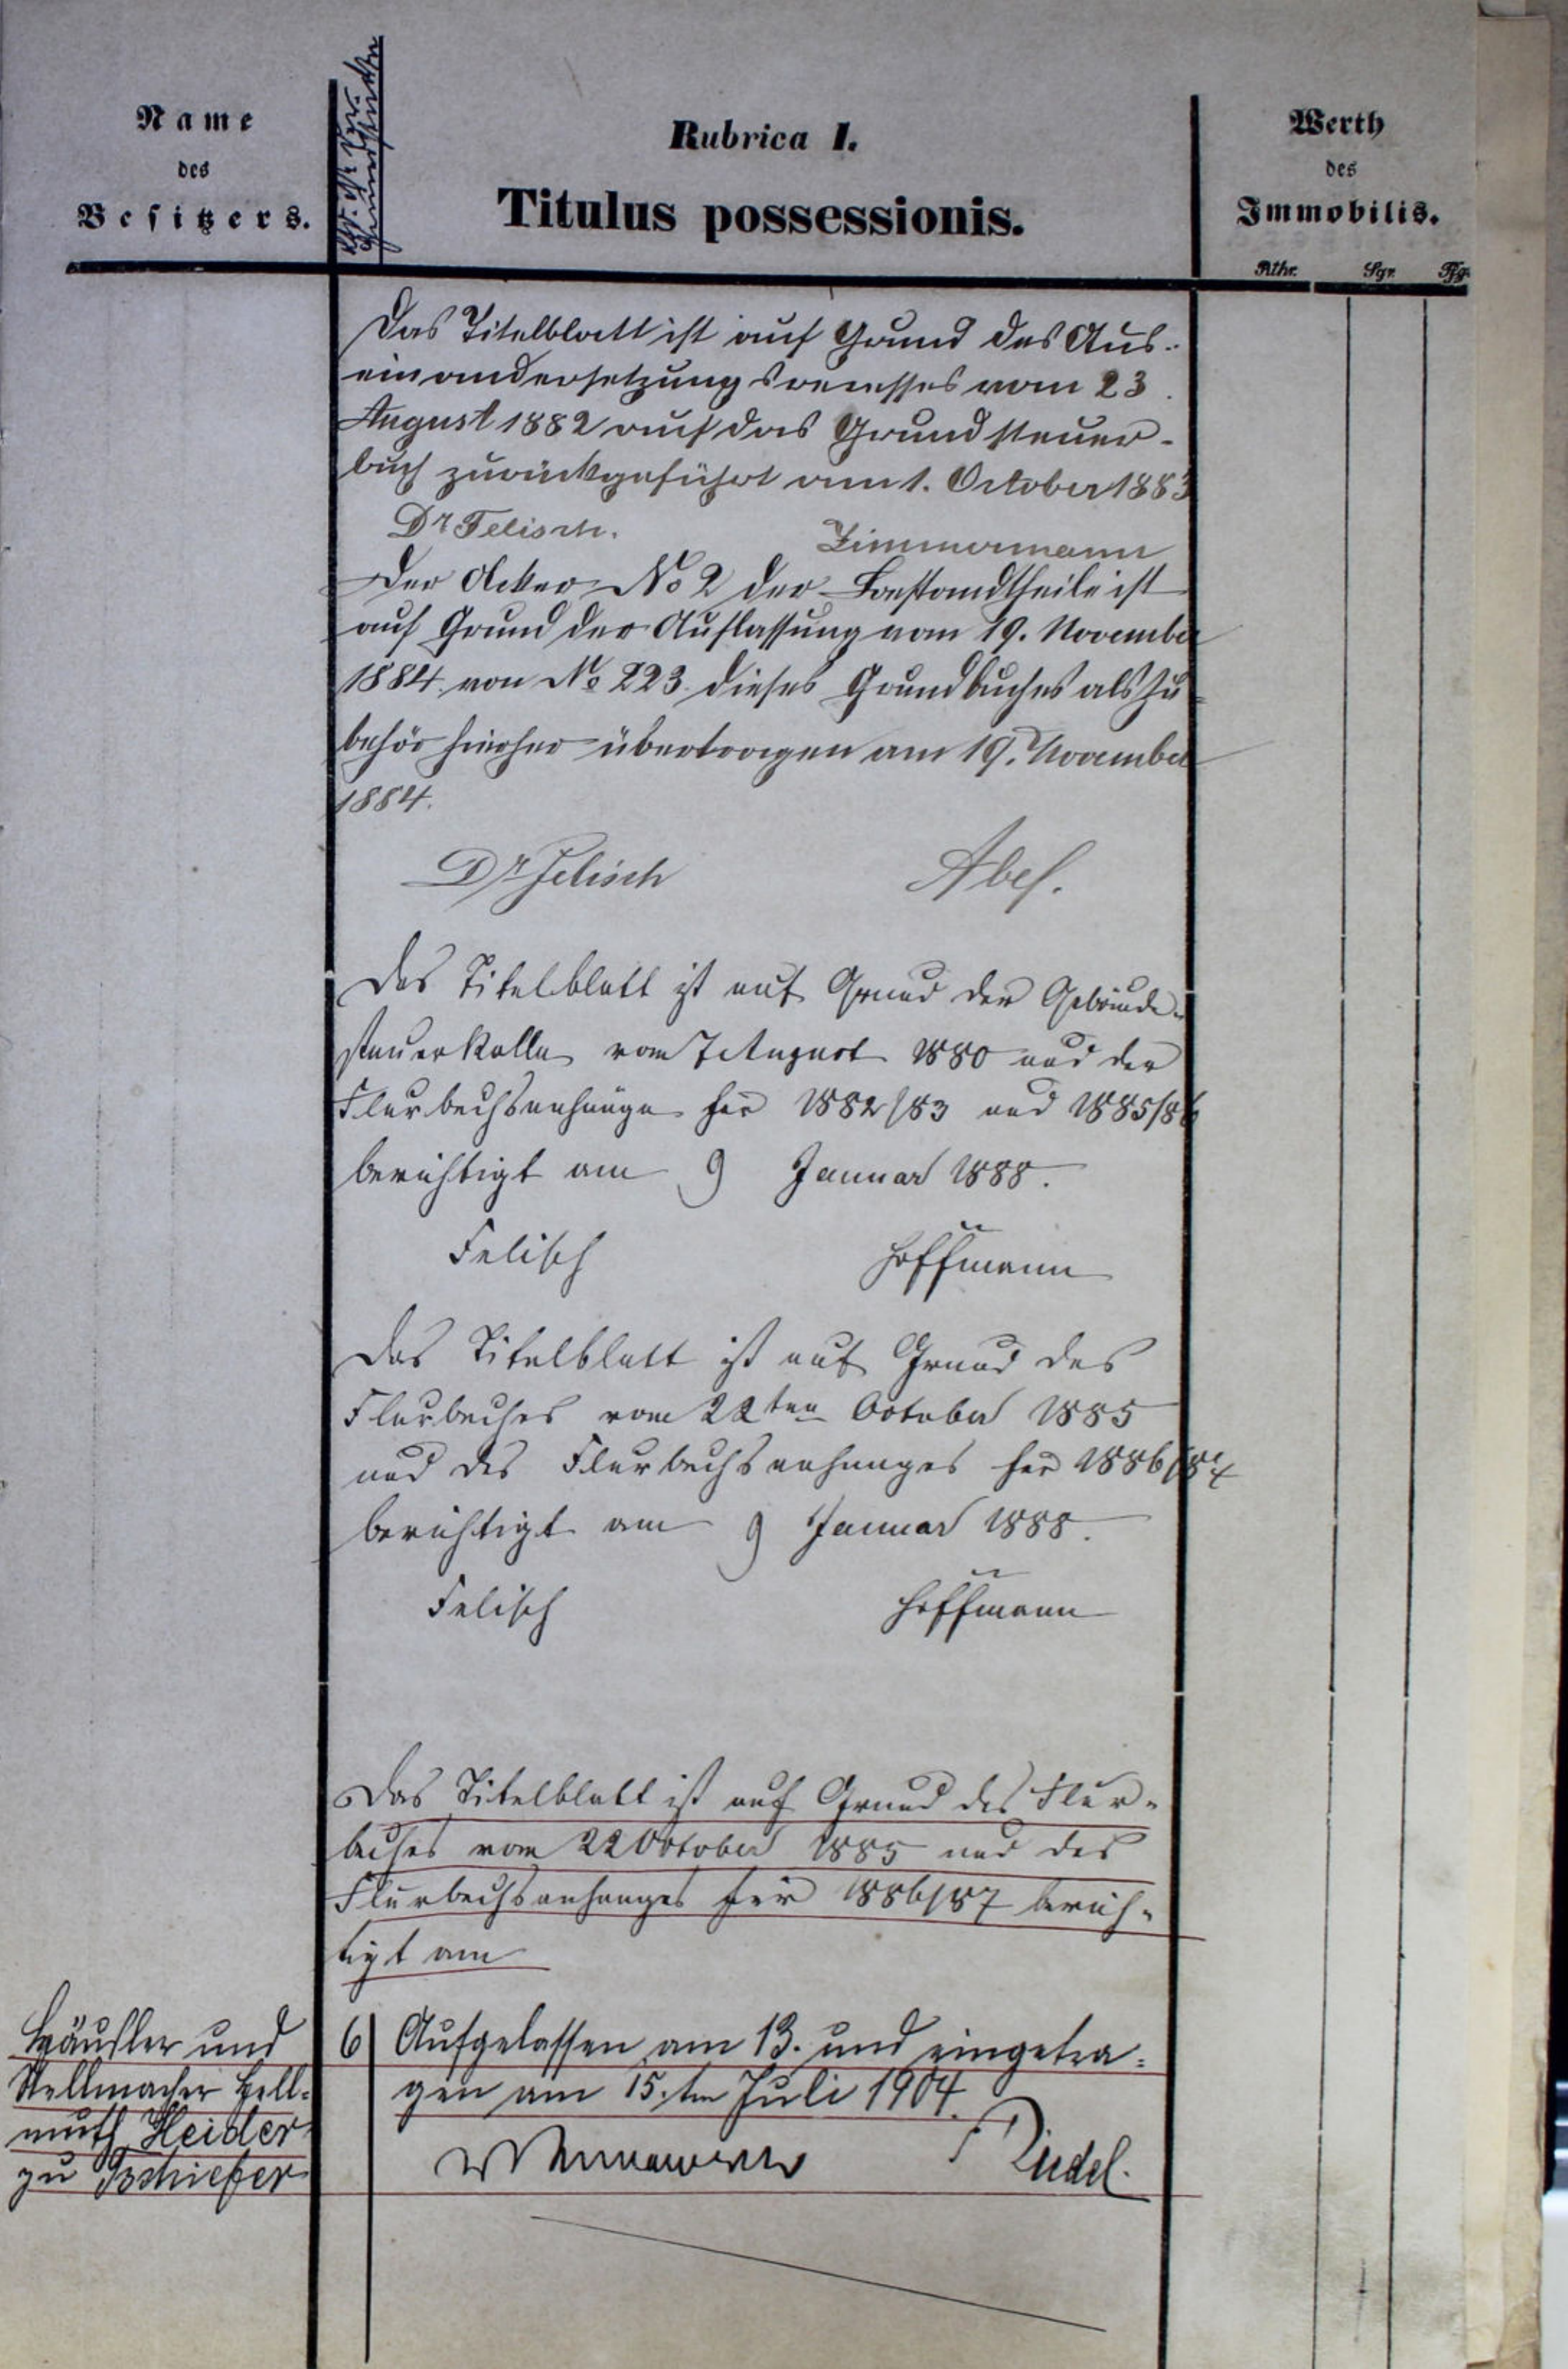 Name
des
Besitzers.
Rubrica I.
Titulus possessionis.
Werth
des
Immobilis.
Rthr. Sgr. Pfg.
Das Titelblatt ist auf Grund des Aus-
einandersetzungsrecesses vom 23.
August 1882 auf das Grundsteuer-
buch zurückgeführt am 1. October 1883
Dr Felisch. Zimmermann
Der Acker No 2 der Bestandtheile ist
auf Grund der Auflassung vom 19. November
1884 von No 223 dieses Grundbuches als Zu-
behör hierher übertragen am 19. November
1884.
Dr Felisch Abel.
Das Titelblatt ist auf Grund der Gebäude-
steuerrolle vom 7 August 1880 und der
Flurbuchsanhänge für 1882/83 und 1885/86
berichtigt am 9 Januar 1888.
Felisch Hoffmann
Das Titelblatt ist auf Grund des
Flurbuches vom 22ten October 1885
und des Flurbuchsanhanges für 1886/87
berichtigt am 9 Januar 1888.
Felisch Hoffmann
Das Titelblatt ist auf Grund des Flur-
buches vom 22 October 1885 und des
Flurbuchsanhanges für 1886/87 berich-
tigt am
Häusler und
Stellmacher Hell-
muth Heider
zu Tschiefer
6 Aufgelassen am 13. und eingetra-
gen am 15. ten Juli 1904.
Riedel.